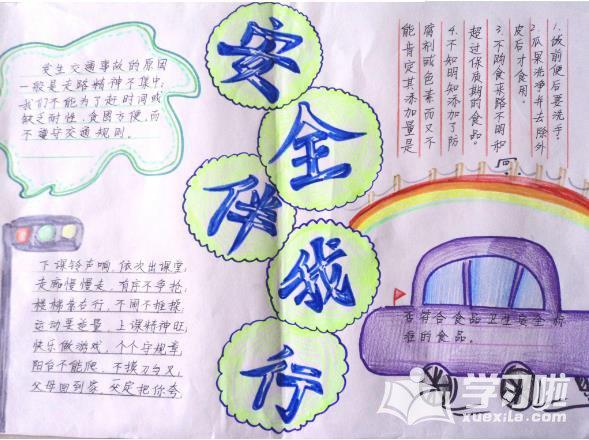 安全伴我行
发生交通事故的原因
一般是走路精神不集中;
我们不能为了赶时间或
缺乏耐性,贪图方便,而
不遵守交通规则。
下课铃声响,依次出课堂;
走廊慢慢走,有序不争抢;
楼梯靠右行,不闹不推搡;
运动要适量,上课精神旺;
快乐做游戏,个个守规章;
阳台不能爬,不摸刀与叉;
父母回到家,一定把你夸
1.饭前便后要洗手。
2.瓜果洗净并去除外
皮后才食用。
3.不购食来路不明和
超过保质期的食品。
4.不如明知添加了防
腐剂或色素而又不
能肯定其添加量是
否符合食品卫生安全标
准的食品。
学习啦
xuexila.com